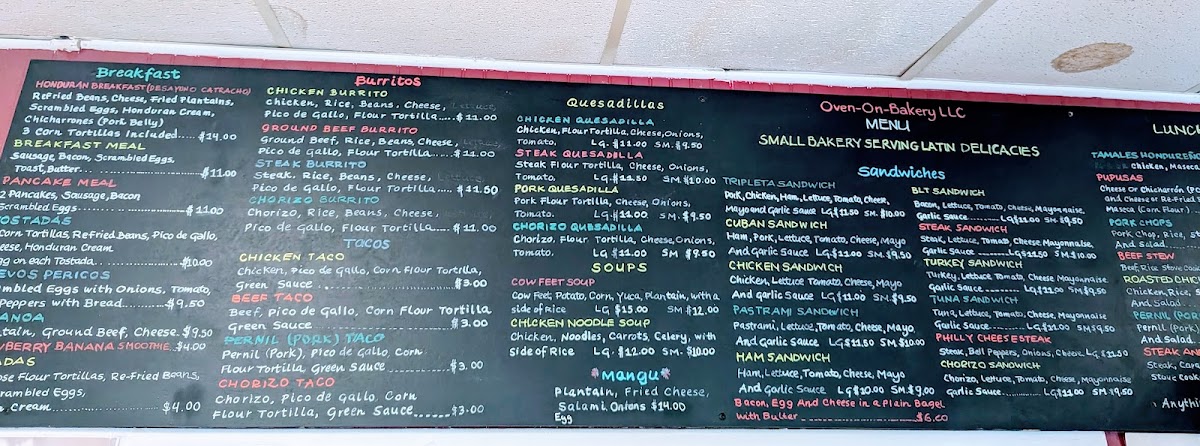 Breakfast
HONDURAN BREAKFAST (DESAYUNO CATRACHO)
Refried Beans, Cheese, Fried Plantains,
Scrambled Eggs, Honduran Cream,
Chicharrones (Pork Belly)
3 Corn Tortillas Included.... $14.00
BREAKFAST MEAL
Sausage, Bacon, Scrambled Eggs,
Toast, Butter $11.00
PANCAKE MEAL
2 Pancakes, Sausage, Bacon
Scrambled Eggs $11.00
OSTADAS
Corn Tortillas, Refried Beans, Pico de Gallo,
eese, Honduran Cream
gg on each Tostada $10.00
EVOS PERICOS
mbled Eggs with Onions, Tomato,
Peppers with Bread $9.50
ANOA
tain, Ground Beef, Cheese. $9.50
WBERRY BANANA SMOOTHIE. $4.00
ADAS
ose Flour Tortillas, Re-Fried Beans,
mbled Eggs,
Cream $4.00
Burritos
CHICKEN BURRITO
Chicken, Rice, Beans, Cheese, Lettuce,
Pico de Gallo, Flour Tortilla..... $11.00
GROUND BEEF BURRITO
Ground Beef, Rice, Beans, Cheese,
Pico de Gallo, Flour Tortilla..... $11.00
STEAK BURRITO
Steak. Rice, Beans, Cheese,
Pico de Gallo, Flour Tortilla .... $11.50
CHORIZO BURRITO
Chorizo, Rice, Beans, Cheese,
Pico de Gallo, Flour Tortilla.... $11.00
TACOS
CHICKEN TACO
Chicken, Pico de Gallo, Corn Flour Tortilla,
Green Sauce $3.00
BEEF TACO
Beef, Pico de Gallo, Corn Flour Tortilla
Green Sauce $3.00
PERNIL (PORK) TACO
Pernil (Pork), Pico de Gallo, Corn
Flour Tortilla, Green Sauce $3.00
CHORIZO TACO
Chorizo, Pico de Gallo, Corn
Flour Tortilla, Green Sauce $3.00
Quesadillas
CHICKEN QUESADILLA
Chicken, Flour Tortilla, Cheese, Onions,
Tomato. LG. $11.00 SM. $9.50
STEAK QUESADILLA
Steak Flour Tortilla, Cheese, Onions,
Tomato. LG. $11.50 SM. $10.00
PORK QUESADILLA
Pork Flour Tortilla, Cheese, Onions,
Tomato. LG. $11.00 SM. $9.50
CHORIZO QUESADILLA
Chorizo, Flour Tortilla, Cheese, Onions,
Tomato. LG. $11.00 SM. $9.50
SOUPS
COW FEET SOUP
Cow Feet, Potato, Corn, Yuca, Plantain, with a
side of Rice LG $15.00 SM $12.00
CHICKEN NOODLE SOUP
Chicken, Noodles, Carrots, Celery, with
side of Rice LG. $12.00 SM. $10.00
Mangu
Plantain, Fried Cheese,
Salami Onions $14.00
Egg
Oven-On-Bakery LLC
MENU
SMALL BAKERY SERVING LATIN DELICACIES
Sandwiches
TRIPLETA SANDWICH
Pork, Chicken, Ham, Lettuce, Tomato, Cheese,
Mayo and Garlic Sauce LG $11.50 SM. $10.00
CUBAN SANDWICH
Ham, Pork, Lettuce, Tomato, Cheese, Mayo
And Garlic Sauce LG $11.00 SM. $9.50
CHICKEN SANDWICH
Chicken, Lettuce Tomato Cheese, Mayo
And Garlic Sauce LG $11.00 SM. $9.50
PASTRAMI SANDWICH
Pastrami, Lettuce, Tomato, Cheese, Mayo,
And Garlic Sauce LG $11.50 SM $10.00
HAM SANDWICH
Ham, Lettuce, Tomato, Cheese, Mayo
And Garlic Sauce LG $10.00 SM $9.00
Bacon, Egg And Cheese in a Plain Bagel
with Butter $6.00
BLT SANDWICH
Bacon, Lettuce, Tomato, Cheese, Mayonnaise
Garlic Sauce LG $11.00 SM $9.50
STEAK SANDWICH
Steak, Lettuce, Tomato, Cheese, Mayonnaise
Garlic Sauce LG $11.50 SM $10.00
TURKEY SANDWICH
Turkey, Lettuce Tomato, Cheese Mayonnaise
Garlic Sauce LG $11.00 SM $9.50
TUNA SANDWICH
Tuna, Lettuce, Tomato, Cheese, Mayonnaise
Garlic Sauce LG $11.00 SM $9.50
PHILLY CHEESESTEAK
Steak, Bell Peppers, Onions, Cheese LG $11.50
CHORIZO SANDWICH
Chorizo, Lettuce, Tomato, Cheese, Mayonnaise
Garlic Sauce LG $11.00 SM $9.50
LUNC
TAMALES HONDUREÑ
Chicken, Masec
PUPUSAS
Cheese or Chicharrón (Po
and Cheese or Re-Fried
Maseca (Corn Flour)
PORK CHOPS
Pork Chop, Rice, S
And Salad
BEEF STEW
Beef, Rice Stove Cooke
ROASTED CHICK
Chicken, Rice,
And Salad
PERNIL (POR
Pernil (Pork)
And Salad
STEAK AN
Steak, Cara
Stove Cook
Anythi